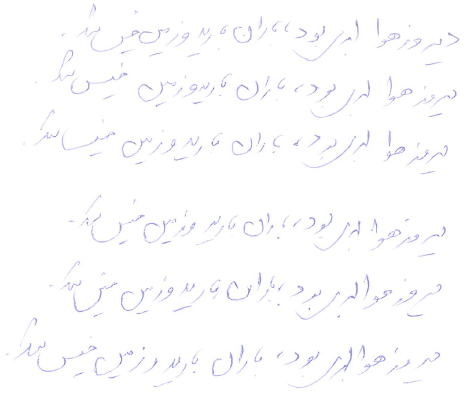 دیروز هوا ابری بود، باران بارید و زمین خیس شد.
دیروز هوا ابری بود، باران بارید و زمین خیس شد.
دیروز هوا ابری بود، باران بارید و زمین خیس شد.
دیروز هوا ابری بود، باران بارید و زمین خیس شد.
دیروز هوا ابری بود، باران بارید و زمین خیس شد.
دیروز هوا ابری بود، باران بارید و زمین خیس شد.